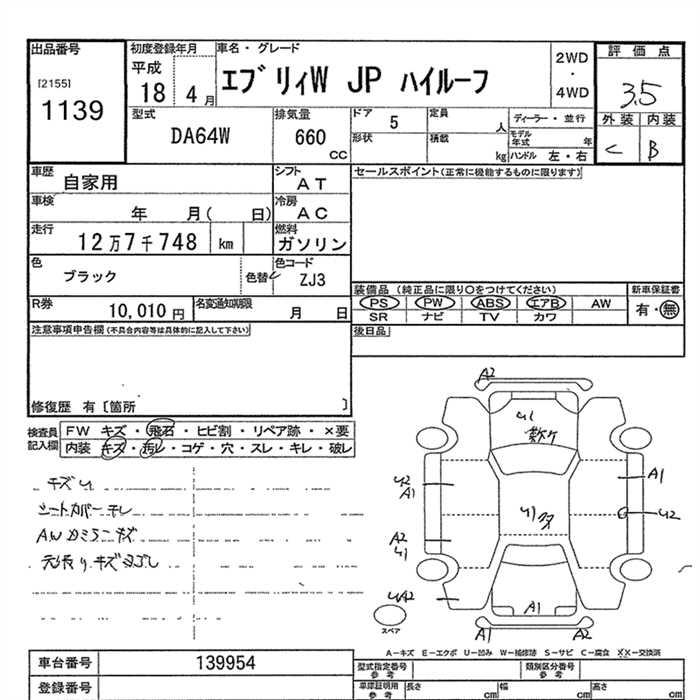 出品番号
[2155]
1139
初度登録年月
平成
18 4 月
車名・グレード
エブリィW JP ハイルーフ
2WD
・
4WD
評価点
3.5
外装 内装
C B
型式
DA64W
排気量
660
CC
ドア
5
定員
人
形状
積載
kg
ディーラー・並行
モデル年式 年
ハンドル 左・右
車歴
自家用
シフト
AT
セールスポイント(正常に機能するものに限ります)
車検
年 月( 日)
冷房
AC
走行
12万7千748 km
燃料
ガソリン
色
ブラック
色替
色コード
ZJ3
装備品 (純正品に限り○をつけてください)
新車保証書
PS PW ABS エアB AW
有・無
SR ナビ TV カワ
R券
10,010 円
名変通知期限
月 日
後日品
注意事項申告欄(不具合内容等は具体的に記入して下さい)
修復歴 有〔箇所 〕
検査員記入欄
FW キズ・飛石・ヒビ割・リペア跡・×要
内装 キズ・汚レ・コゲ・穴・スレ・キレ・破レ
キズ
シートカバー キレ
AWカミラニキズ
キズヨゴレ
A2
A1
U2
A1
U2
A2
U1
A1
UA2
A1
A2
スペア
A-キズ E-エクボ U-凹み W-補修跡 S-サビ C-腐食 XX-交換済
車台番号
139954
登録番号
型式指定番号
参考
類別区分番号
参考
車庫証明用
参考
長さ cm
幅 cm
高さ cm